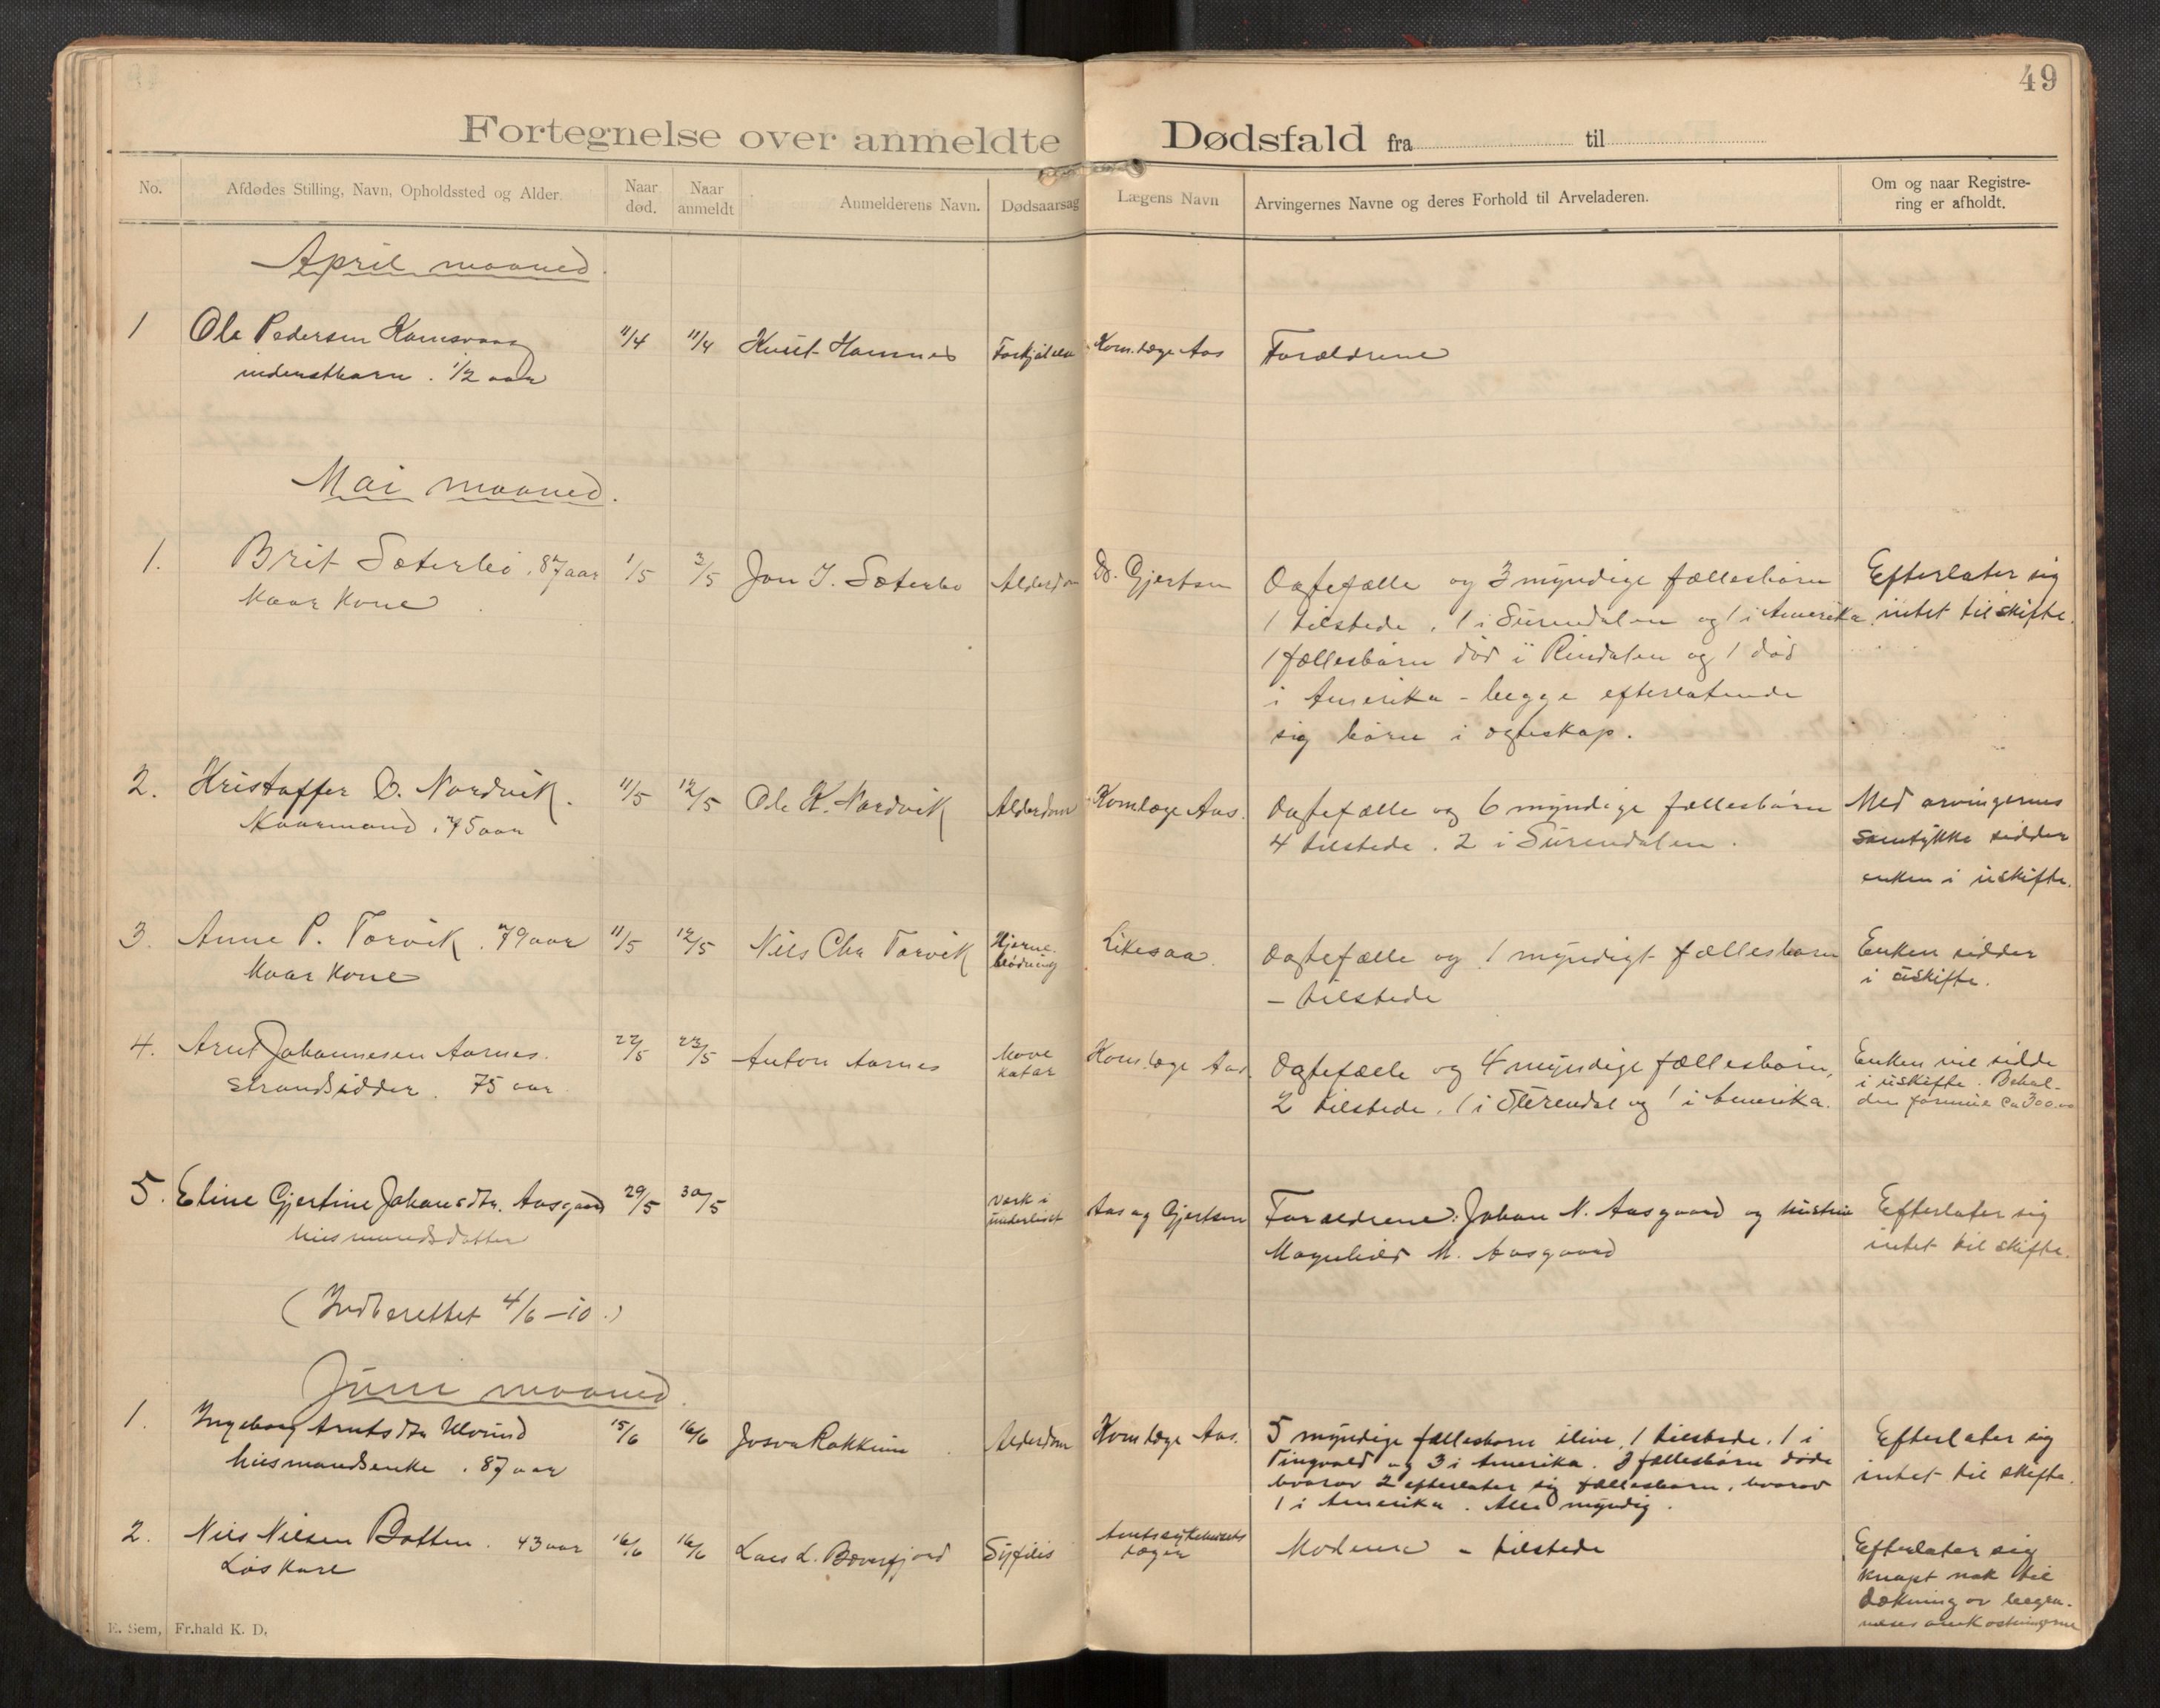 49
Fortegnelse over anmeldte Dødsfald fra til
No. Afdødes Stilling, Navn, Opholdssted og Alder. Naar død. Naar anmeldt Anmelderens Navn. Dødsaarsag Lægens Navn Arvingernes Navne og deres Forhold til Arveladeren. Om og naar Registrering er afholdt.
April maaned.
1 Ole Pedersen 11/4 11/4 Knut Hamnes Forkjølelse Kom.læge Aas Forældrene
1/2 aar
Mai maaned.
1. Brit Sæterbø. 87 aar 1/5 3/5 Jon J. Sæterbø Alderdom Dr. Gjertsen Ægtefælle og 3 myndige fællesbørn Efterlater sig
Kaarkone 1 tilstede, 1 i Surendalen og 1 i Amerika. intet til skifte.
1 fællesbarn død i Rindalen og 1 død
i Amerika - begge efterlatende
sig børn i ægteskap.
2. Kristoffer O. Nordvik. 11/5 12/5 Ole K. Nordvik Alderdom Komlæge Aas. Ægtefælle og 6 myndige fællesbørn Med arvingernes
Kaarmand. 75 aar 4 tilstede. 2 i Surendalen. samtykke sidder
enken i uskifte.
3. Anne P. Torvik. 79 aar 11/5 12/5 Nils Chr Torvik Hjerne- Likesaa. Ægtefælle og 1 myndigt fællesbarn Enken sidder
Kaarkone blødning - tilstede i uskifte.
4. Arnt Johannesen Aarnes. 22/5 23/5 Anton Aarnes Mave Komlæge Aas. Ægtefælle og 4 myndige fællesbørn, Enken vil sidde
Strandsidder. 75 aar katar 2 tilstede, 1 i Surendal og 1 i Amerika. i uskifte. Behol-
den formue ca 300.00
5. Eline Gjertine Johansdtr. Aasgaard 29/5 30/5 Værk i Aas og Gjertsen Forældrene: Johan N. Aasgaard og hustru Efterlater sig
husmandsdatter underlivet Magnhild M. Aasgaard intet til skifte.
(Indberettet 4/6-10.)
Juni maaned.
1. Ingeborg Arntsdtr Ulvund 15/6 16/6 Josva Rakkum Alderdom Komlæge Aas. 5 myndige fællesbørn ilive, 1 tilstede, 1 i Efterlater sig
husmandsenke. 87 aar Tingvold og 3 i Amerika. 3 fællesbørn døde intet til skifte.
hvorav 2 efterlater sig fællesbørn, hvorav
1 i Amerika. Alle myndig.
2. Nils Nilsen Botten. 43 aar 16/6 16/6 Lars L. Bæverfjord Syfilis Amtssykehusets Moderen - tilstede Efterlater sig
Løskarl læger knapt nok til
dækning av begra-
velsesomkostningerne
E. Sem, Fr.hald K. D.